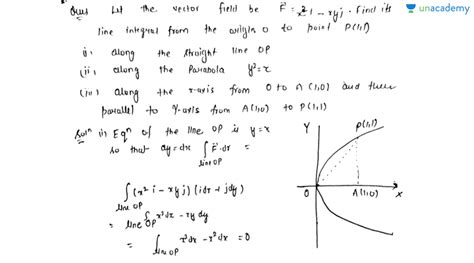 unacademy
Ques Let the vector field be F⃗ = x² i - xyj. Find its
line integral from the origin O to point P(1,1)
i) along the straight line OP
(ii) along the Parabola y² = x
(iii) along the x-axis from O to A(1,0) and then
parallel to Y-axis from A(1,0) to P(1,1)
Solⁿ i) Eqⁿ of the line OP is y = x
so that dy = dx ∫ F⃗·dr =
line OP
∫ (x² i - xyj)(idx + jdy)
line OP
= ∫ x²dx - xy dy
line OP
= ∫ x²dx - x²dx = 0
line OP
Y
P(1,1)
O
A(1,0)
X